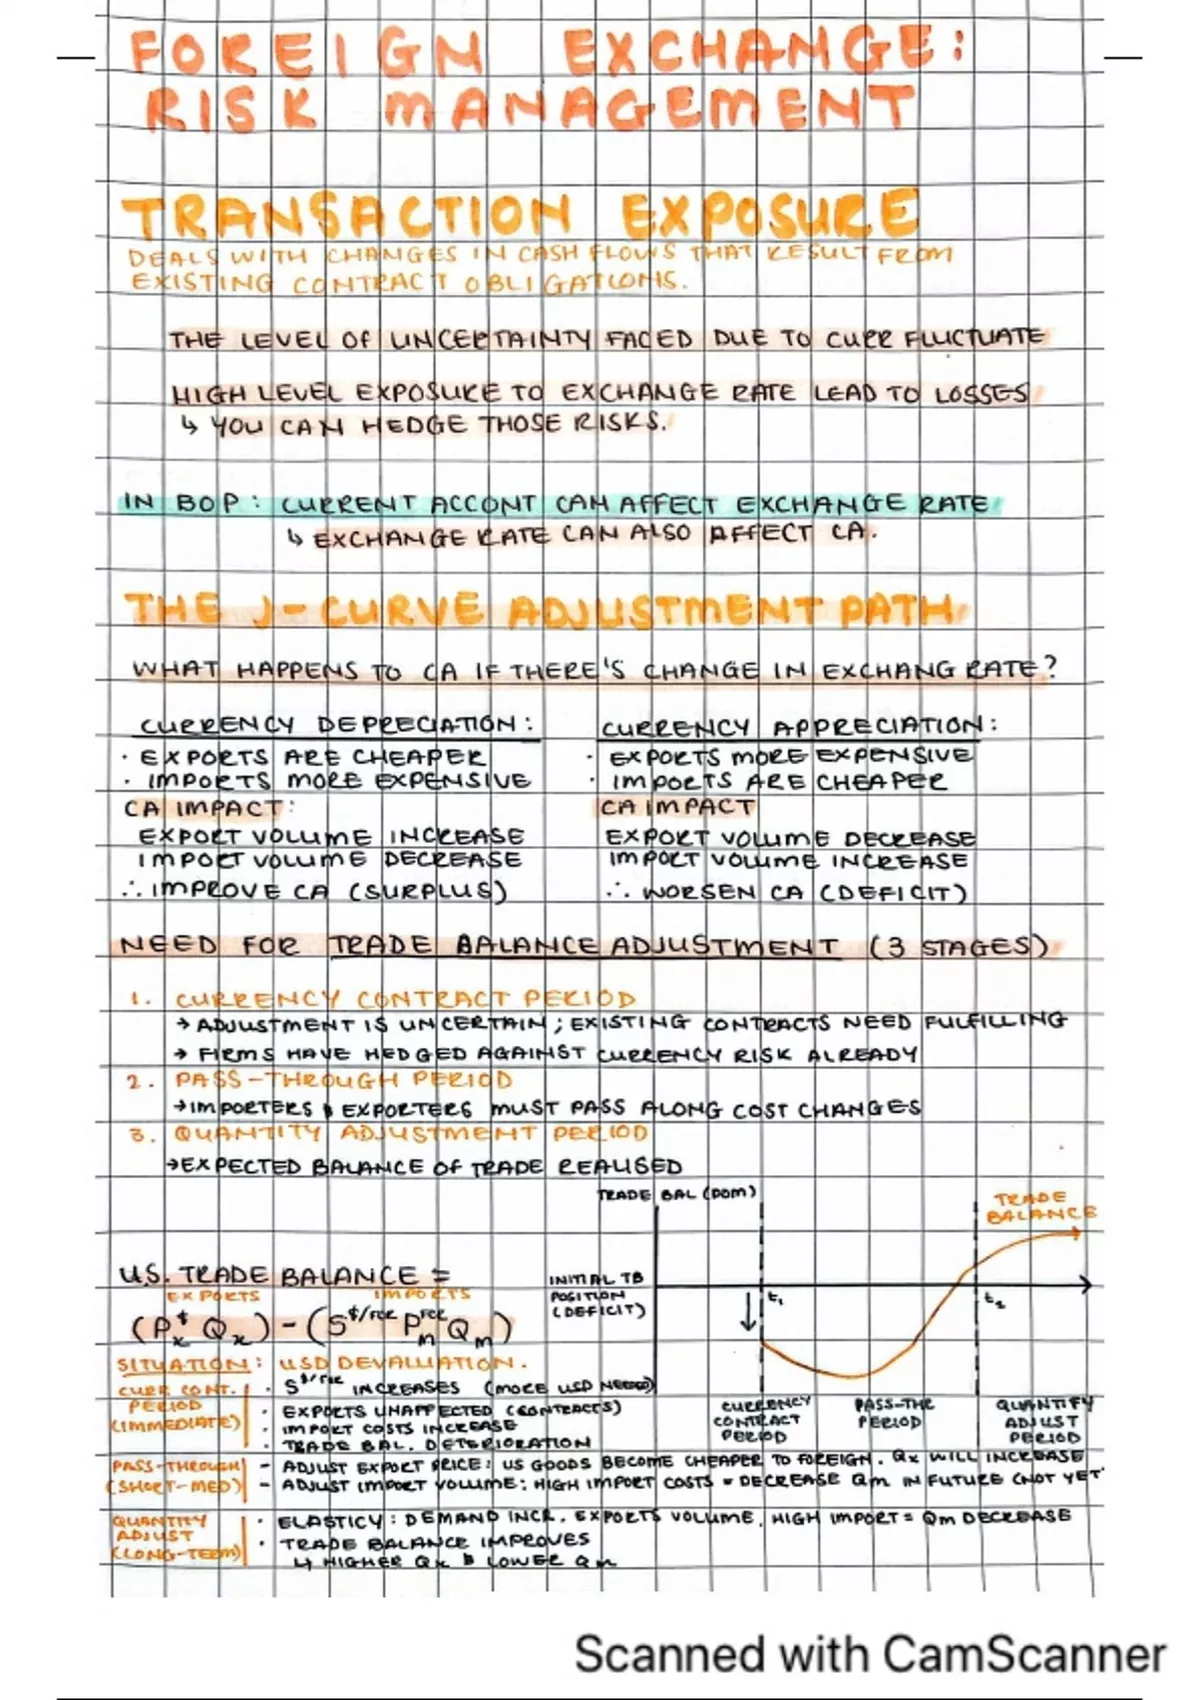 FOREIGN EXCHANGE:
RISK MANAGEMENT
TRANSACTION EXPOSURE
DEALS WITH CHANGES IN CASH FLOWS THAT RESULT FROM
EXISTING CONTRACT OBLIGATIONS.
THE LEVEL OF UNCERTAINTY FACED DUE TO CURR FLUCTUATE
HIGH LEVEL EXPOSURE TO EXCHANGE RATE LEAD TO LOSSES
↳ YOU CAN HEDGE THOSE RISKS.
IN BOP: CURRENT ACCONT CAN AFFECT EXCHANGE RATE
↳ EXCHANGE RATE CAN ALSO AFFECT CA.
THE J-CURVE ADJUSTMENT PATH
WHAT HAPPENS TO CA IF THERE'S CHANGE IN EXCHANG RATE?
CURRENCY DEPRECIATION:
· EXPORTS ARE CHEAPER
· IMPORTS MORE EXPENSIVE
CA IMPACT:
EXPORT VOLUME INCREASE
IMPORT VOLUME DECREASE
∴ IMPROVE CA (SURPLUS)
CURRENCY APPRECIATION:
· EXPORTS MORE EXPENSIVE
· IMPORTS ARE CHEAPER
CA IMPACT
EXPORT VOLUME DECREASE
IMPORT VOLUME INCREASE
∴ WORSEN CA (DEFICIT)
NEED FOR TRADE BALANCE ADJUSTMENT (3 STAGES)
1. CURRENCY CONTRACT PERIOD
→ ADJUSTMENT IS UNCERTAIN; EXISTING CONTRACTS NEED FULFILLING
→ FIRMS HAVE HEDGED AGAINST CURRENCY RISK ALREADY
2. PASS-THROUGH PERIOD
→ IMPORTERS & EXPORTERS MUST PASS ALONG COST CHANGES
3. QUANTITY ADJUSTMENT PERIOD
→ EXPECTED BALANCE OF TRADE REALISED
TRADE BAL (DOM)
TRADE
BALANCE
INITIAL TB
POSITION
(DEFICIT)
t₁
t₂
CURRENCY
CONTRACT
PERIOD
PASS-THR
PERIOD
QUANTIFY
ADJUST
PERIOD
U.S. TRADE BALANCE =
EXPORTS IMPORTS
(Pₓ$ Qₓ) - (S$/FCR PmFCR Qm)
SITUATION: USD DEVALUATION.
CURR CONT.
PERIOD
(IMMEDIATE)
· S$/FCR INCREASES (MORE USD NEEDED)
· EXPORTS UNAFFECTED (CONTRACTS)
· IMPORT COSTS INCREASE
· TRADE BAL. DETERIORATION
PASS-THROUGH
(SHORT-MED)
- ADJUST EXPORT PRICE: US GOODS BECOME CHEAPER TO FOREIGN. Qx WILL INCREASE
- ADJUST IMPORT VOLUME: HIGH IMPORT COSTS = DECREASE Qm IN FUTURE (NOT YET
QUANTITY
ADJUST
(LONG-TERM)
· ELASTICY: DEMAND INCR. EXPORTS VOLUME. HIGH IMPORT = Qm DECREASE
· TRADE BALANCE IMPROVES
↳ HIGHER Qx & LOWER Qm
Scanned with CamScanner